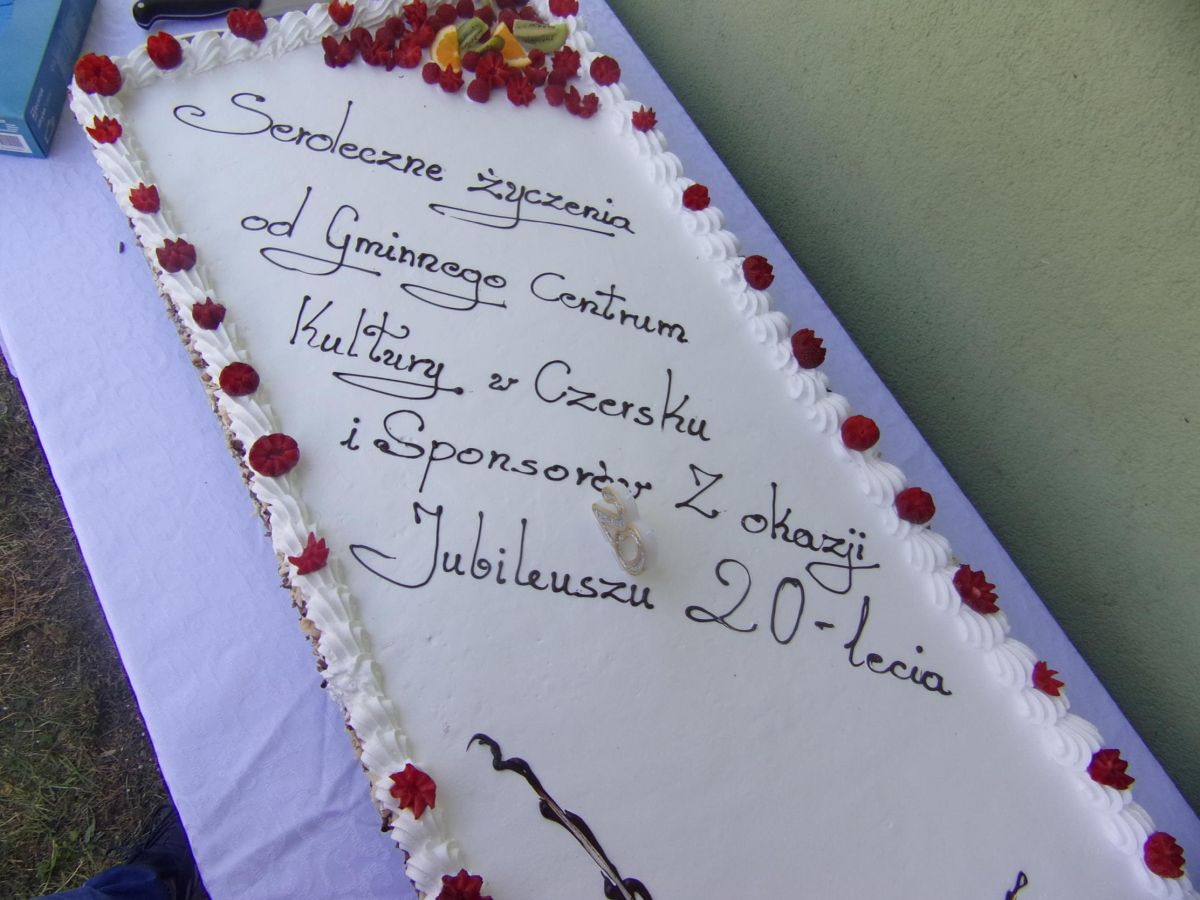 Serdeczne życzenia
od Gminnego Centrum
Kultury w Czersku
i Sponsorów Z okazji
Jubileuszu 20-lecia
20